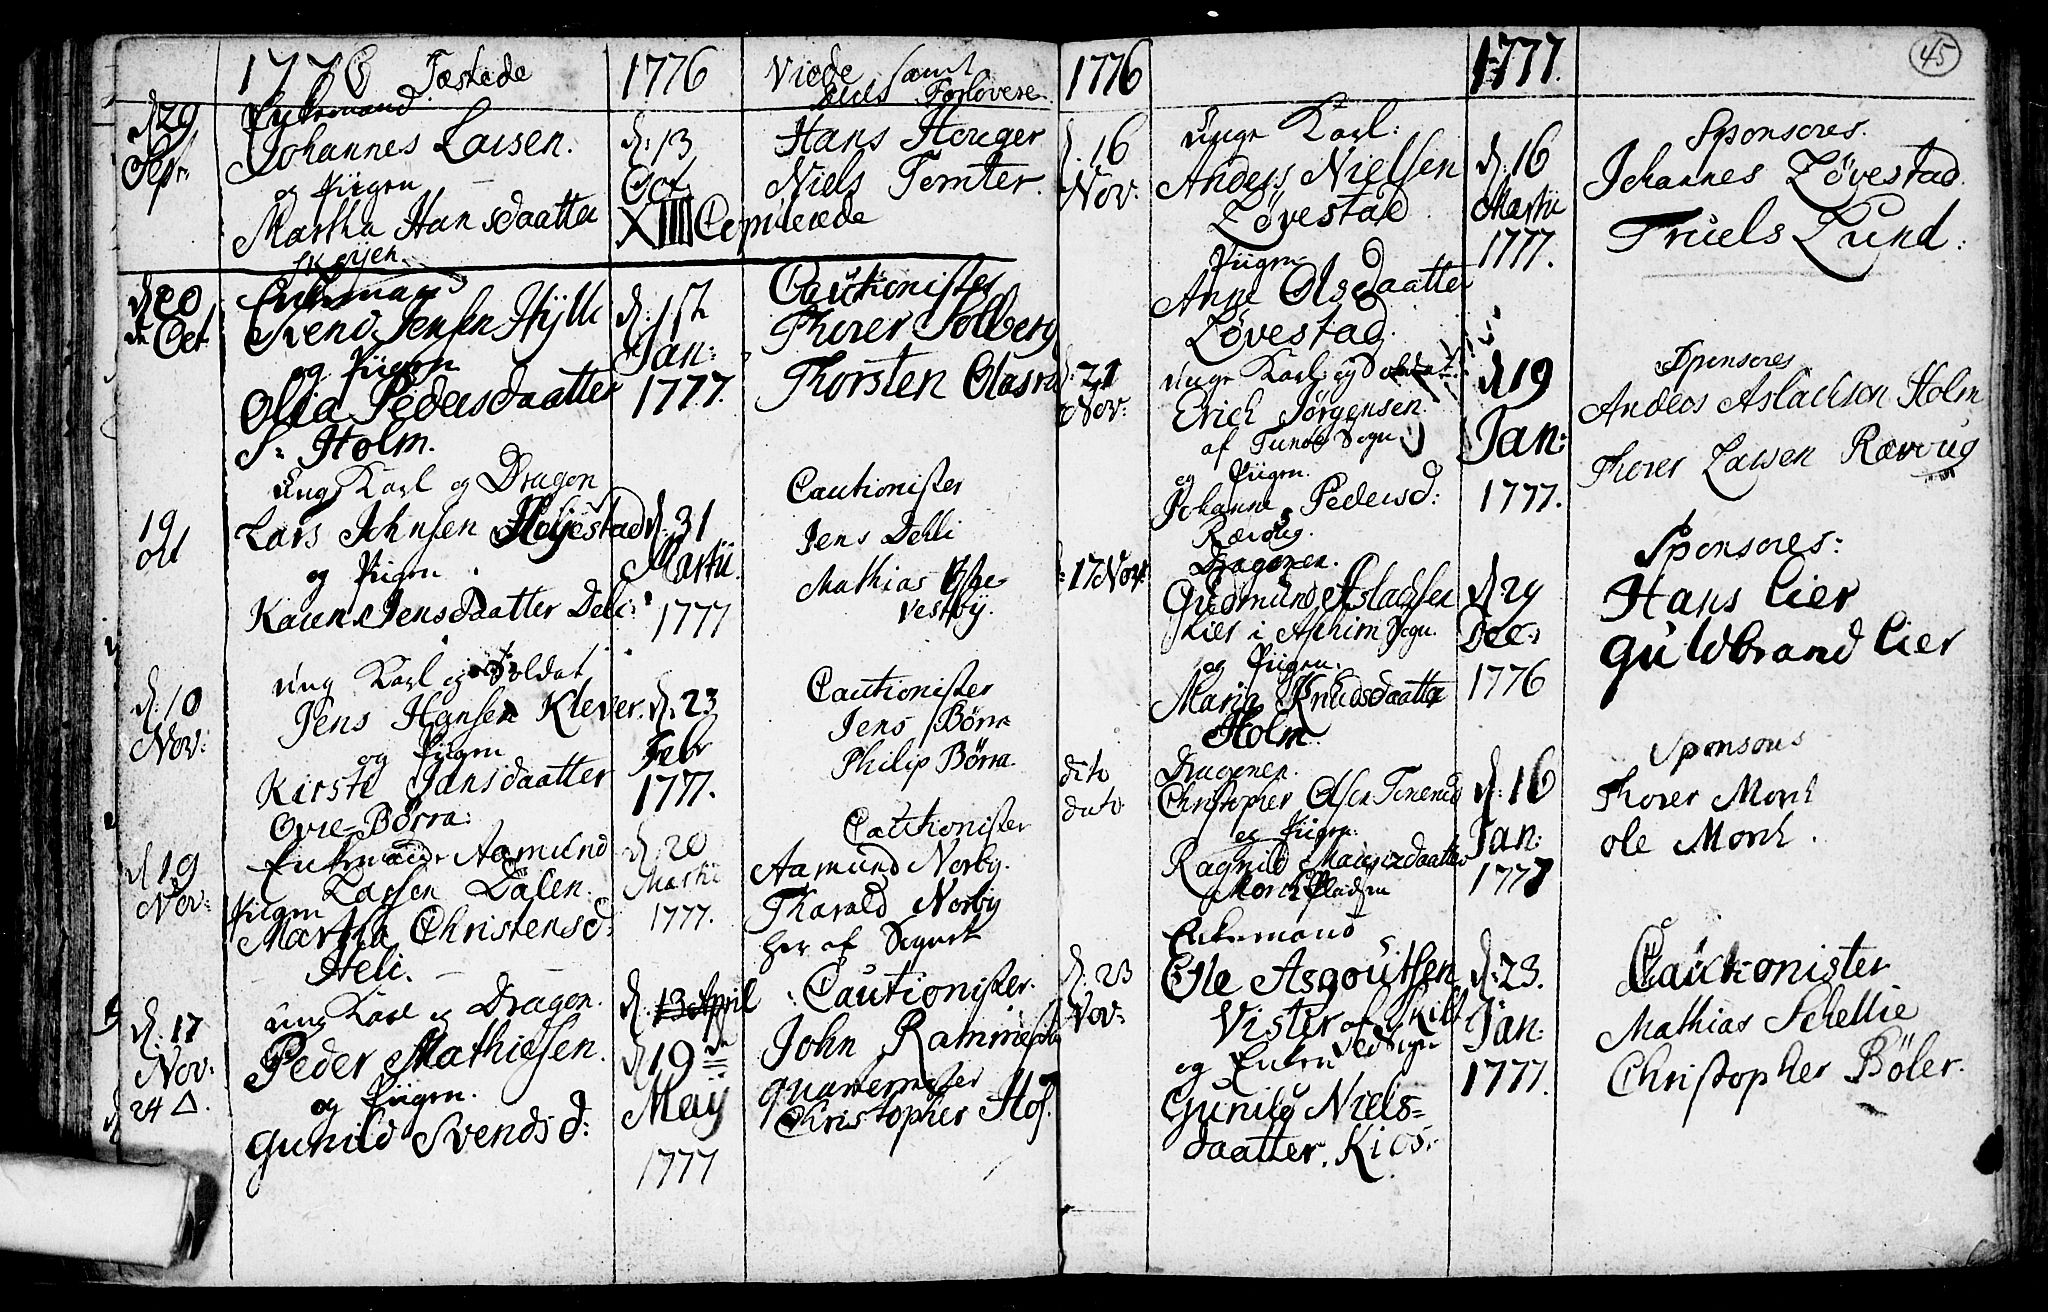 1776 Fæstede
1776
Viede samt
deres Forlovere
d 29
Sept:
Enkemand
Johannes Larsen.
og Piigen
Martha Hansdaatter
Skøyen
d: 13
Oct
XIIII Copulerede
Hans Houger
Niels Tomter.
d 20
de Oct
Enkemand
Svend Jensen Hylli
og Piigen
Olia Pedersdaatter
S: Holm.
d: 15de
Jan:
1777.
Cautionister
Thorer Solberg
Thorsten Glasrud
19
Oct
Ung Karl og Dragon
Lars Johnsen Høyestad
og Piigen
Karen Jensdaatter Deli:
d: 31
Martii.
1777
Cautionister
Jens Dehli
Mathias
Vestby.
d: 10
Nov:
Ung Karl og Soldat
Jens Hansen Klever.
og Piigen
Kirsti Jansdaatter
Ovre-Børra:
d: 23
Febr
1777.
Cautionister
Jens Børra
Philip Børra.
d 19
Nov:
Enkemand Aamund
Larsen Dalen.
Piigen
Martha Christensd:
Heli.
d: 20
Martii
1777.
Cautionister
Aamund Norby.
Tharald Norby
her af Sognet
d: 17
Nov:
24 Δ.
Ung Karl og Dragon.
Peder Mathiesen.
og Piigen.
Gunild Svendsd:
d: 13 April
d 19de
Maij
1777
Cautionister.
John Rammestad
Quartermester
Christopher Hof.
1776
1777.
45
d. 16
Nov:
Unge Karl:
Anders Nielsen
Løvestad
Piigen
Anne Olsdaatter
Løvestad.
d: 16
Martii
1777.
Sponsores.
Johannes Løvestad
Truels Lund:
d: 21
Nov:
Unge Karl og Soldat
Erich Jørgensen
af Tunøe Sogn
og Piigen.
Johanne Pedersd:
Rævoug.
d 19
Jan:
1777.
Sponsores
Anders Aslachson Holm
Thorer Larsen Rævoug
17 Nov:
Dragonen.
Gudmund Aslachsen
Kier i Aschim Sogn.
og Piigen.
Maria Knudsdaatter
Holm.
d 29
Dec:
1776
Sponsores:
Hans Lier
Guldbrand Lier
dito
dato
Dragonen.
Christopher Olsen
og Piigen.
Ragnild
Morch Pladsen
d: 16
Jan:
1777
Sponsores
Thorer Morch
Ole Morch.
d. 23
Nov:
Enkemand
Ole Asgoutsen
Vister af Skibt
ved Sogn
og Enken
Gunild Niels=
daatter. Kios.
d: 23.
Jan:
1777.
Cautionister
Mathias Schellie
Christopher Böler.